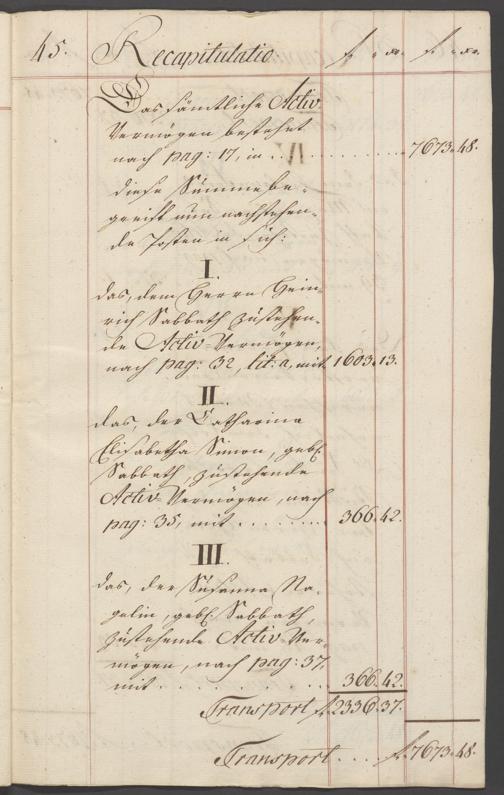 45. Recapitulatio f. xr. f. xr.
Das sämtliche Activ
Vermögen bestehet
nach pag: 17, in . . . . . . . . . . 7673.48.
diese Summe be-
greift nun nachstehen-
de Posten in sich:
I.
das, dem Herrn Hein-
rich Sabbath zustehen-
de Activ-Vermögen,
nach pag: 32, lit: a, mit 1603.13.
II.
das, der Catharina
Elisabetha Simon, geb.
Sabbath, zustehende
Activ-Vermögen, nach
pag: 35, mit . . . . . . . 366.42.
III.
das, der Susanna Na-
gelin, geb. Sabbath,
zustehende Activ Ver-
mögen, nach pag: 37.
mit . . . . . . . . . 366.42.
Transport f. 2336.37.
Transport . . . f. 7673.48.